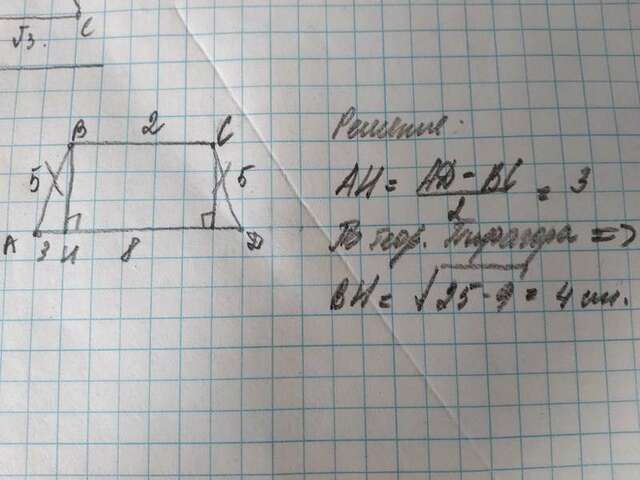 C
√3.
B 2 C
5 5
A 3 H 8 D
Решение:
AH = AD - BC / 2 = 3
По теор. Пифагора =>
BH = √25-9 = 4 см.